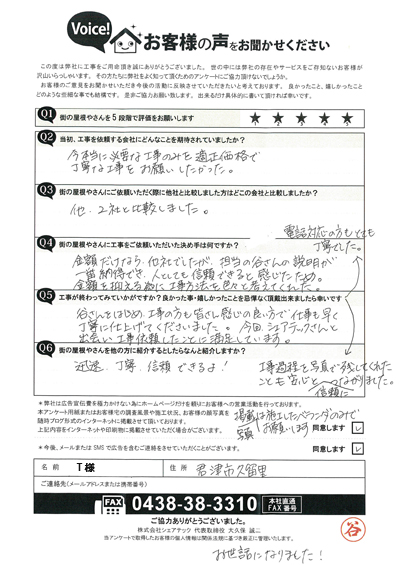 Voice!
お客様の声をお聞かせください
この度は弊社に工事をご用命頂き誠にありがとうございました。世の中には弊社の存在やサービスをご存知ないお客様が
沢山いらっしゃいます。その方たちに弊社をよく知って頂くためのアンケートにご協力頂けないでしょうか。
お客様のご意見をお聞かせいただき今後の活動に反映させていただきたいと考えております。良かったこと、嬉しかったこと
どのような些細な事でも結構です。是非ご協力お願い致します。出来るだけ具体的に書いて頂ければ幸いです。
Q1 街の屋根やさんを5段階で評価をお願いします
★ ★ ★ ★ ★
Q2 当初、工事を依頼する会社にどんなことを期待されていましたか?
今本当に必要な工事のみを適正価格で
丁寧な工事をお願いしたかった。
Q3 街の屋根やさんにご依頼いただく際に他社と比較しました方はどこの会社と比較しましたか?
他、2社と比較しました。
電話対応の方もとても
丁寧でした。
Q4 街の屋根やさんに工事をご依頼いただいた決め手は何ですか?
金額だけなら、他社でしたが、担当の谷さんの説明が
一番納得でき、人としても信頼できると感じたため。
金額を抑える為に工事方法を色々と考えてくれた。
Q5 工事が終わってみていかがですか?良かった事・嬉しかったことを忌憚なく頂戴出来ましたら幸いです
谷さんをはじめ、工事の方も皆さん感じの良い方で仕事も早く
丁寧に仕上げてくださいました。今回、シェアテックさんと
出会い工事依頼したことに満足しています。
Q6 街の屋根やさんを他の方に紹介するとしたらなんと紹介しますか?
迅速、丁寧、信頼できるよ!
工事過程を写真で残してくれた
ことも安心と信頼につながりました。
※弊社は広告宣伝費を極力かけない為にホームページだけを頼りにお客様への営業活動を行っております。
本アンケート用紙またはお客様宅の調査風景や施工状況、お客様の顔写真を
随時ブログ形式のインターネットに掲載させて頂いております。
上記内容をインターネットや印刷物に掲載させていただく場合がございます。
掲載は施工したベランダのみで
お願いします
同意します ✓
※今後、メールまたは SMS で広告を含むご連絡をさせていただくことがございます。
同意します ✓
名前 T様 住所 君津市久留里
ご連絡先(メールアドレスまたは携帯番号)
FAX FAX番号 0438-38-3310 本社直通 FAX番号
ご協力ありがとうございました。
株式会社シェアテック 代表取締役 大久保 誠二
当アンケートで取得したお客様の個人情報は関係法規に基づき厳正に管理いたします。
谷
お世話になりました!